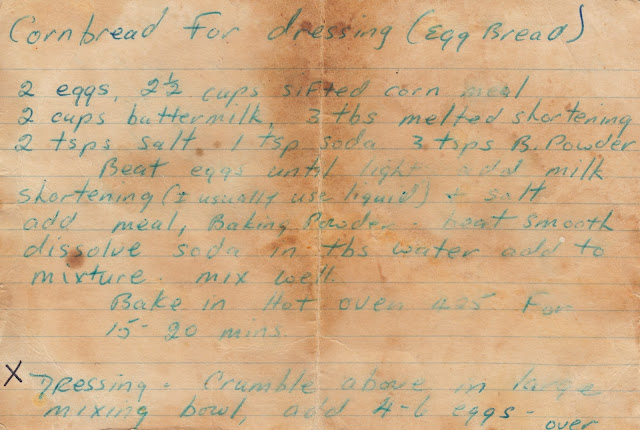 Cornbread For dressing (Egg Bread)
2 eggs, 2½ cups sifted corn meal
2 cups buttermilk, 3 tbs melted shortening
2 tsps salt 1 tsp soda 3 tsps B. Powder
Beat eggs until light add milk
shortening (I usually use liquid) + salt
add meal, Baking Powder - beat smooth
dissolve soda in tbs water add to
mixture. mix well.
Bake in Hot oven 425 For
15-20 mins.
X Dressing - Crumble above in large
mixing bowl, add 4-6 eggs -
over